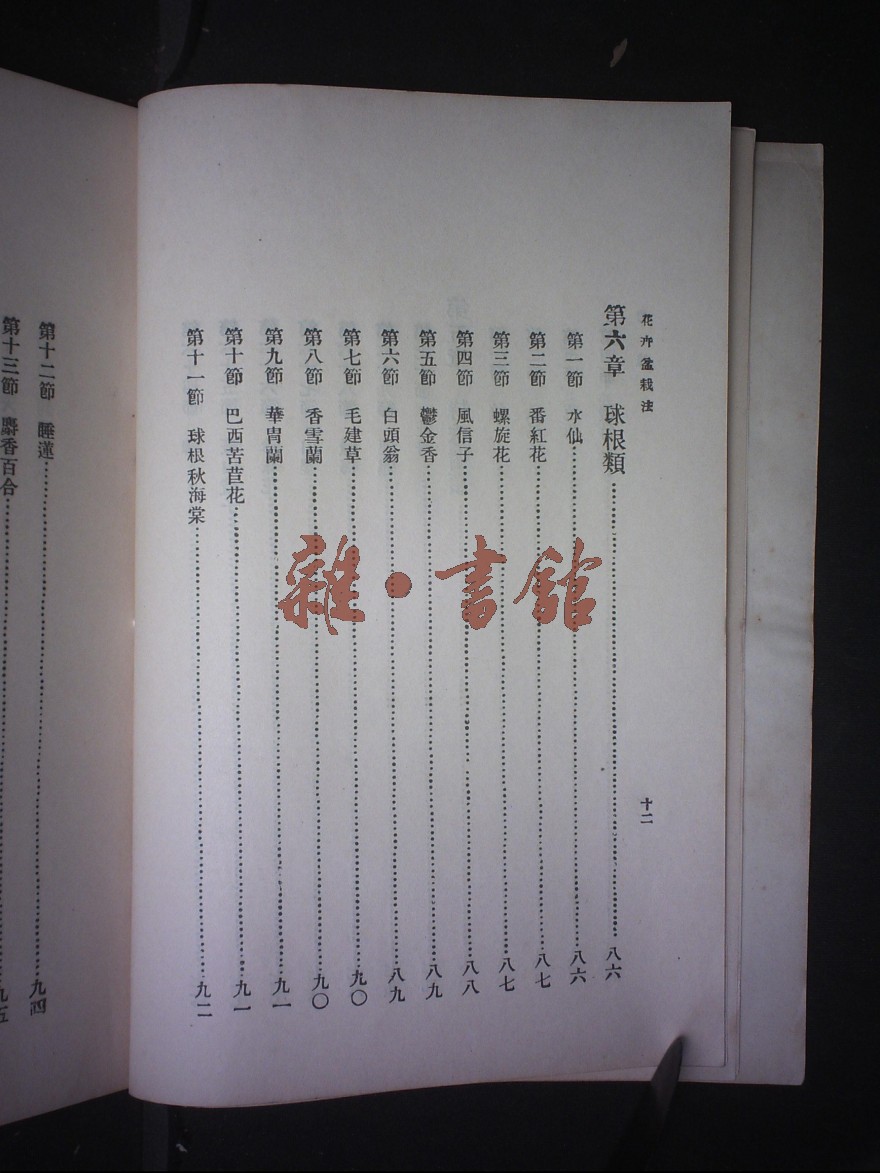 花卉盆栽法
十二
第六章　球根類……八六
第一節　水仙……八六
第二節　番紅花……八七
第三節　螺旋花……八七
第四節　風信子……八八
第五節　鬱金香……八九
第六節　白頭翁……八九
第七節　毛建草……九〇
第八節　香雪蘭……九〇
第九節　華冑蘭……九一
第十節　巴西苦苣花……九一
第十一節　球根秋海棠……九二
第十二節　睡蓮……九四
第十三節　麝香百合……九五
雜•書館